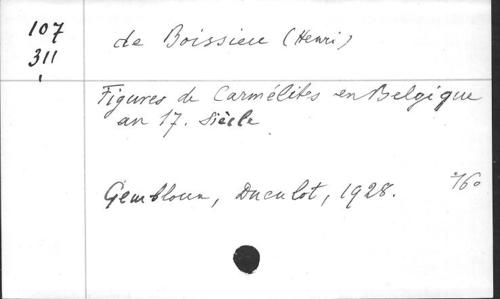 107
311
de Boissieu (Henri)
Figures de Carmélites en Belgique
au 17. Siècle
Gembloux, Duculot, 1928.